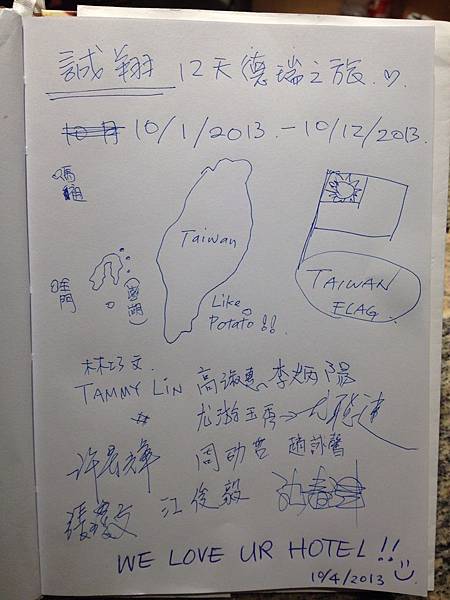 誠翔 12天德瑞之旅 ♡.
10月 10/1/2013 - 10/12/2013.
馬祖
Taiwan
金門
(澎湖)
Like
Potato!!
TAIWAN
FLAG
林巧文
TAMMY LIN 高淑惠 李炳陽
尤游玉秀→
周劭哲 趙詠馨
張慶文 江俊毅
WE LOVE UR HOTEL!!
10/4/2013